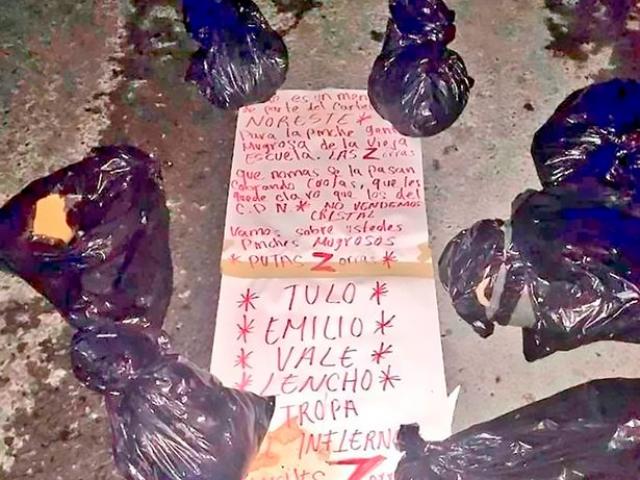 es un men
parte del Carte
NORESTE *
Para la pinche gente
Mugrosa de la Vieja
Escuela. LAS Zorras
que nomas se la pasan
cobrando cuotas, que les
quede claro que los del
C.D.N. * NO VENDEMOS
CRISTAL
Vamos sobre ustedes
Pinches Mugrosos
* PUTAS Zorras *
* TULO *
* EMILIO *
* VALE *
* LENCHO *
TROPA
INFIERN
Z